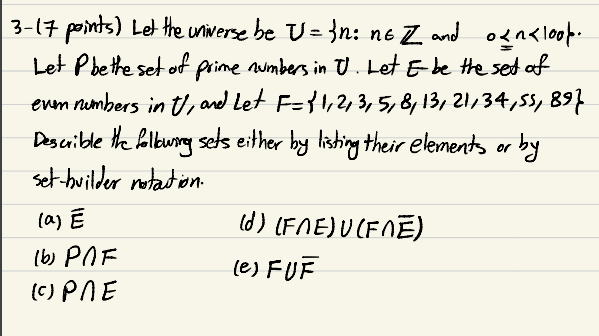 3-(7 points) Let the universe be U = {n: n ∈ ℤ and 0 ≤ n < 100}.
Let P be the set of prime numbers in U. Let E be the set of
even numbers in U, and Let F = {1, 2, 3, 5, 8, 13, 21, 34, 55, 89}
Describle the following sets either by listing their elements or by
set-builder notation.
(a) E̅
(b) P∩F
(c) P∩E
(d) (F∩E)∪(F∩E̅)
(e) F∪F̅